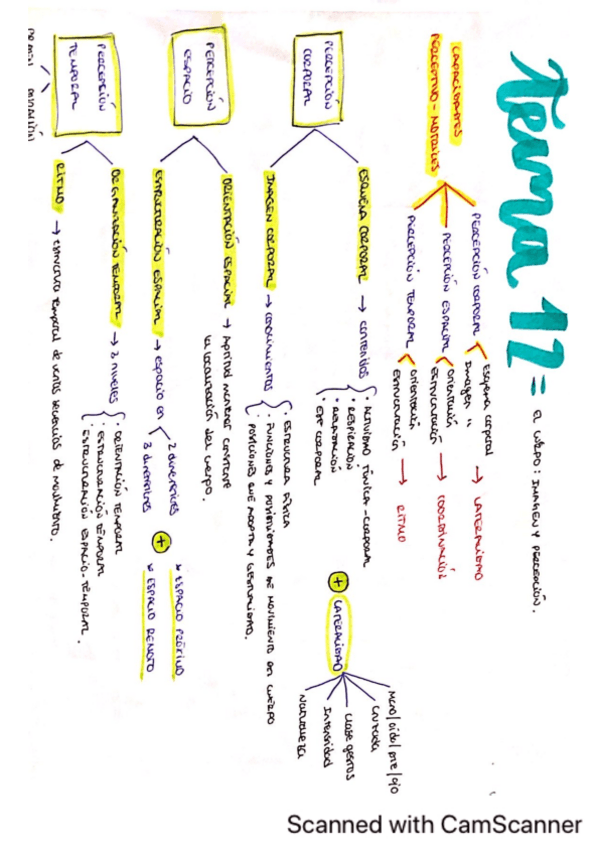 Tema 12 = El cuerpo: Imagen y percepción.
CAPACIDADES PERCEPTIVO-MOTRICES
PERCEPCIÓN CORPORAL
Esquema corporal → LATERALIDAD
Imagen "
PERCEPCIÓN ESPACIAL
orientación
estructuración → COORDINACIÓN
PERCEPCIÓN TEMPORAL
orientación
estructuración → RITMO
PERCEPCIÓN CORPORAL
ESQUEMA CORPORAL → CONTENIDOS
· ACTIVIDAD TÓNICA-CORPORAL
· RELAJACIÓN
· RESPIRACIÓN
· EJE CORPORAL
+ LATERALIDAD
Mano/oido/pie/ojo
Cruzada
Clase gestos
Intensidad
Naturaleza
IMAGEN CORPORAL → CONOCIMIENTOS
· ESTRUCTURA FÍSICA
· FUNCIONES Y POSIBILIDADES DE MOVIMIENTO DEL CUERPO
· POSICIONES QUE ADOPTA Y GESTUALIDAD.
PERCEPCIÓN ESPACIO
ORIENTACIÓN ESPACIAL → Aptitud mantener constante
la localización del cuerpo.
ESTRUCTURACIÓN ESPACIAL → espacio en
2 dimensiones
3 dimensiones
+
ESPACIO PRÓXIMO
ESPACIO REMOTO
PERCEPCIÓN TEMPORAL
ORGANIZACIÓN TEMPORAL → 3 niveles
· ORIENTACIÓN TEMPORAL
· ESTRUCTURACIÓN TEMPORAL
· ESTRUCTURACIÓN ESPACIO-TEMPORAL.
RITMO → estructura temporal de varias secuencias de movimiento.
ORDEN DURACIÓN
Scanned with CamScanner